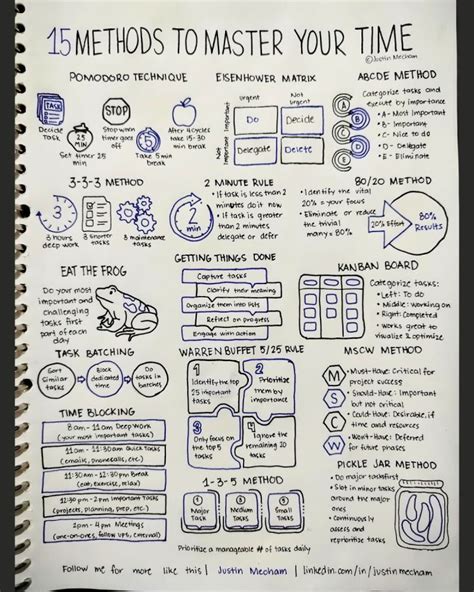 15 METHODS TO MASTER YOUR TIME
©Justin Mecham
POMODORO TECHNIQUE
TASK
Decide
Task
25
MIN
Set timer 25
min
STOP
Stop when
timer goes
off
Take 5 min
break
After 4 cycles
take 15-30
min break
EISENHOWER MATRIX
Urgent
Not
urgent
Important
Not important
Do
Decide
Delegate
Delete
ABCDE METHOD
Categorize tasks and
execute by importance
A
B
C
D
E
• A - Most Important
• B - Important
• C - Nice to do
• D - Delegate
• E - Eliminate
3-3-3 METHOD
3
3 hours
deep work
3 shorter
tasks
3 maintenance
tasks
2 MINUTE RULE
2
min
• If task is less than 2
minutes do it now
• If task is greater
than 2 minutes
delegate or defer
80/20 METHOD
• Identify the vital
20% = your focus
• Eliminate or reduce
the trivial
many = 80%
20% Effort
80%
Results
EAT THE FROG
Do your most
important and
challenging
tasks first
part of each
day
GETTING THINGS DONE
Capture tasks
Clarify their meaning
Organize them into lists
Reflect on progress
Engage with action
KANBAN BOARD
Categorize tasks:
• Left: To do
• Middle: Working on
• Right: Completed
• works great to
visualize & optimize
TASK BATCHING
Sort
Similar
tasks
Block
dedicated
time
Do
tasks in
batches
WARREN BUFFET 5/25 RULE
1
Identify the top
25 important
tasks
2
Prioritize
them by
importance
3
Only focus on
the top 5
tasks
4
Ignore the
remaining 20
tasks
MSCW METHOD
M
S
C
W
• Must-Have: Critical for
project success
• Should-Have: Important
but not critical
• Could-Have: Desirable, if
time and resources
• Won't-Have: Deferred
for future phases
TIME BLOCKING
8am - 11am Deep Work
(your most important tasks)
11am - 11:30am Quick Tasks
(emails, phonecalls, etc.)
11:30am - 12:30pm Break
(eat, exercise, relax)
12:30pm - 2pm Important Tasks
(projects, planning, prep, etc.)
2pm - 4pm Meetings
(one-on-ones, follow ups, external)
1-3-5 METHOD
1
Major
Task
3
Medium
Tasks
5
Small
Tasks
Prioritize a manageable # of tasks daily
PICKLE JAR METHOD
• Do major tasks first
• Slot in minor tasks
around the major
ones
• Continuously
assess and
reprioritize tasks
Follow me for more like this | Justin Mecham | linkedin.com/in/justinmecham